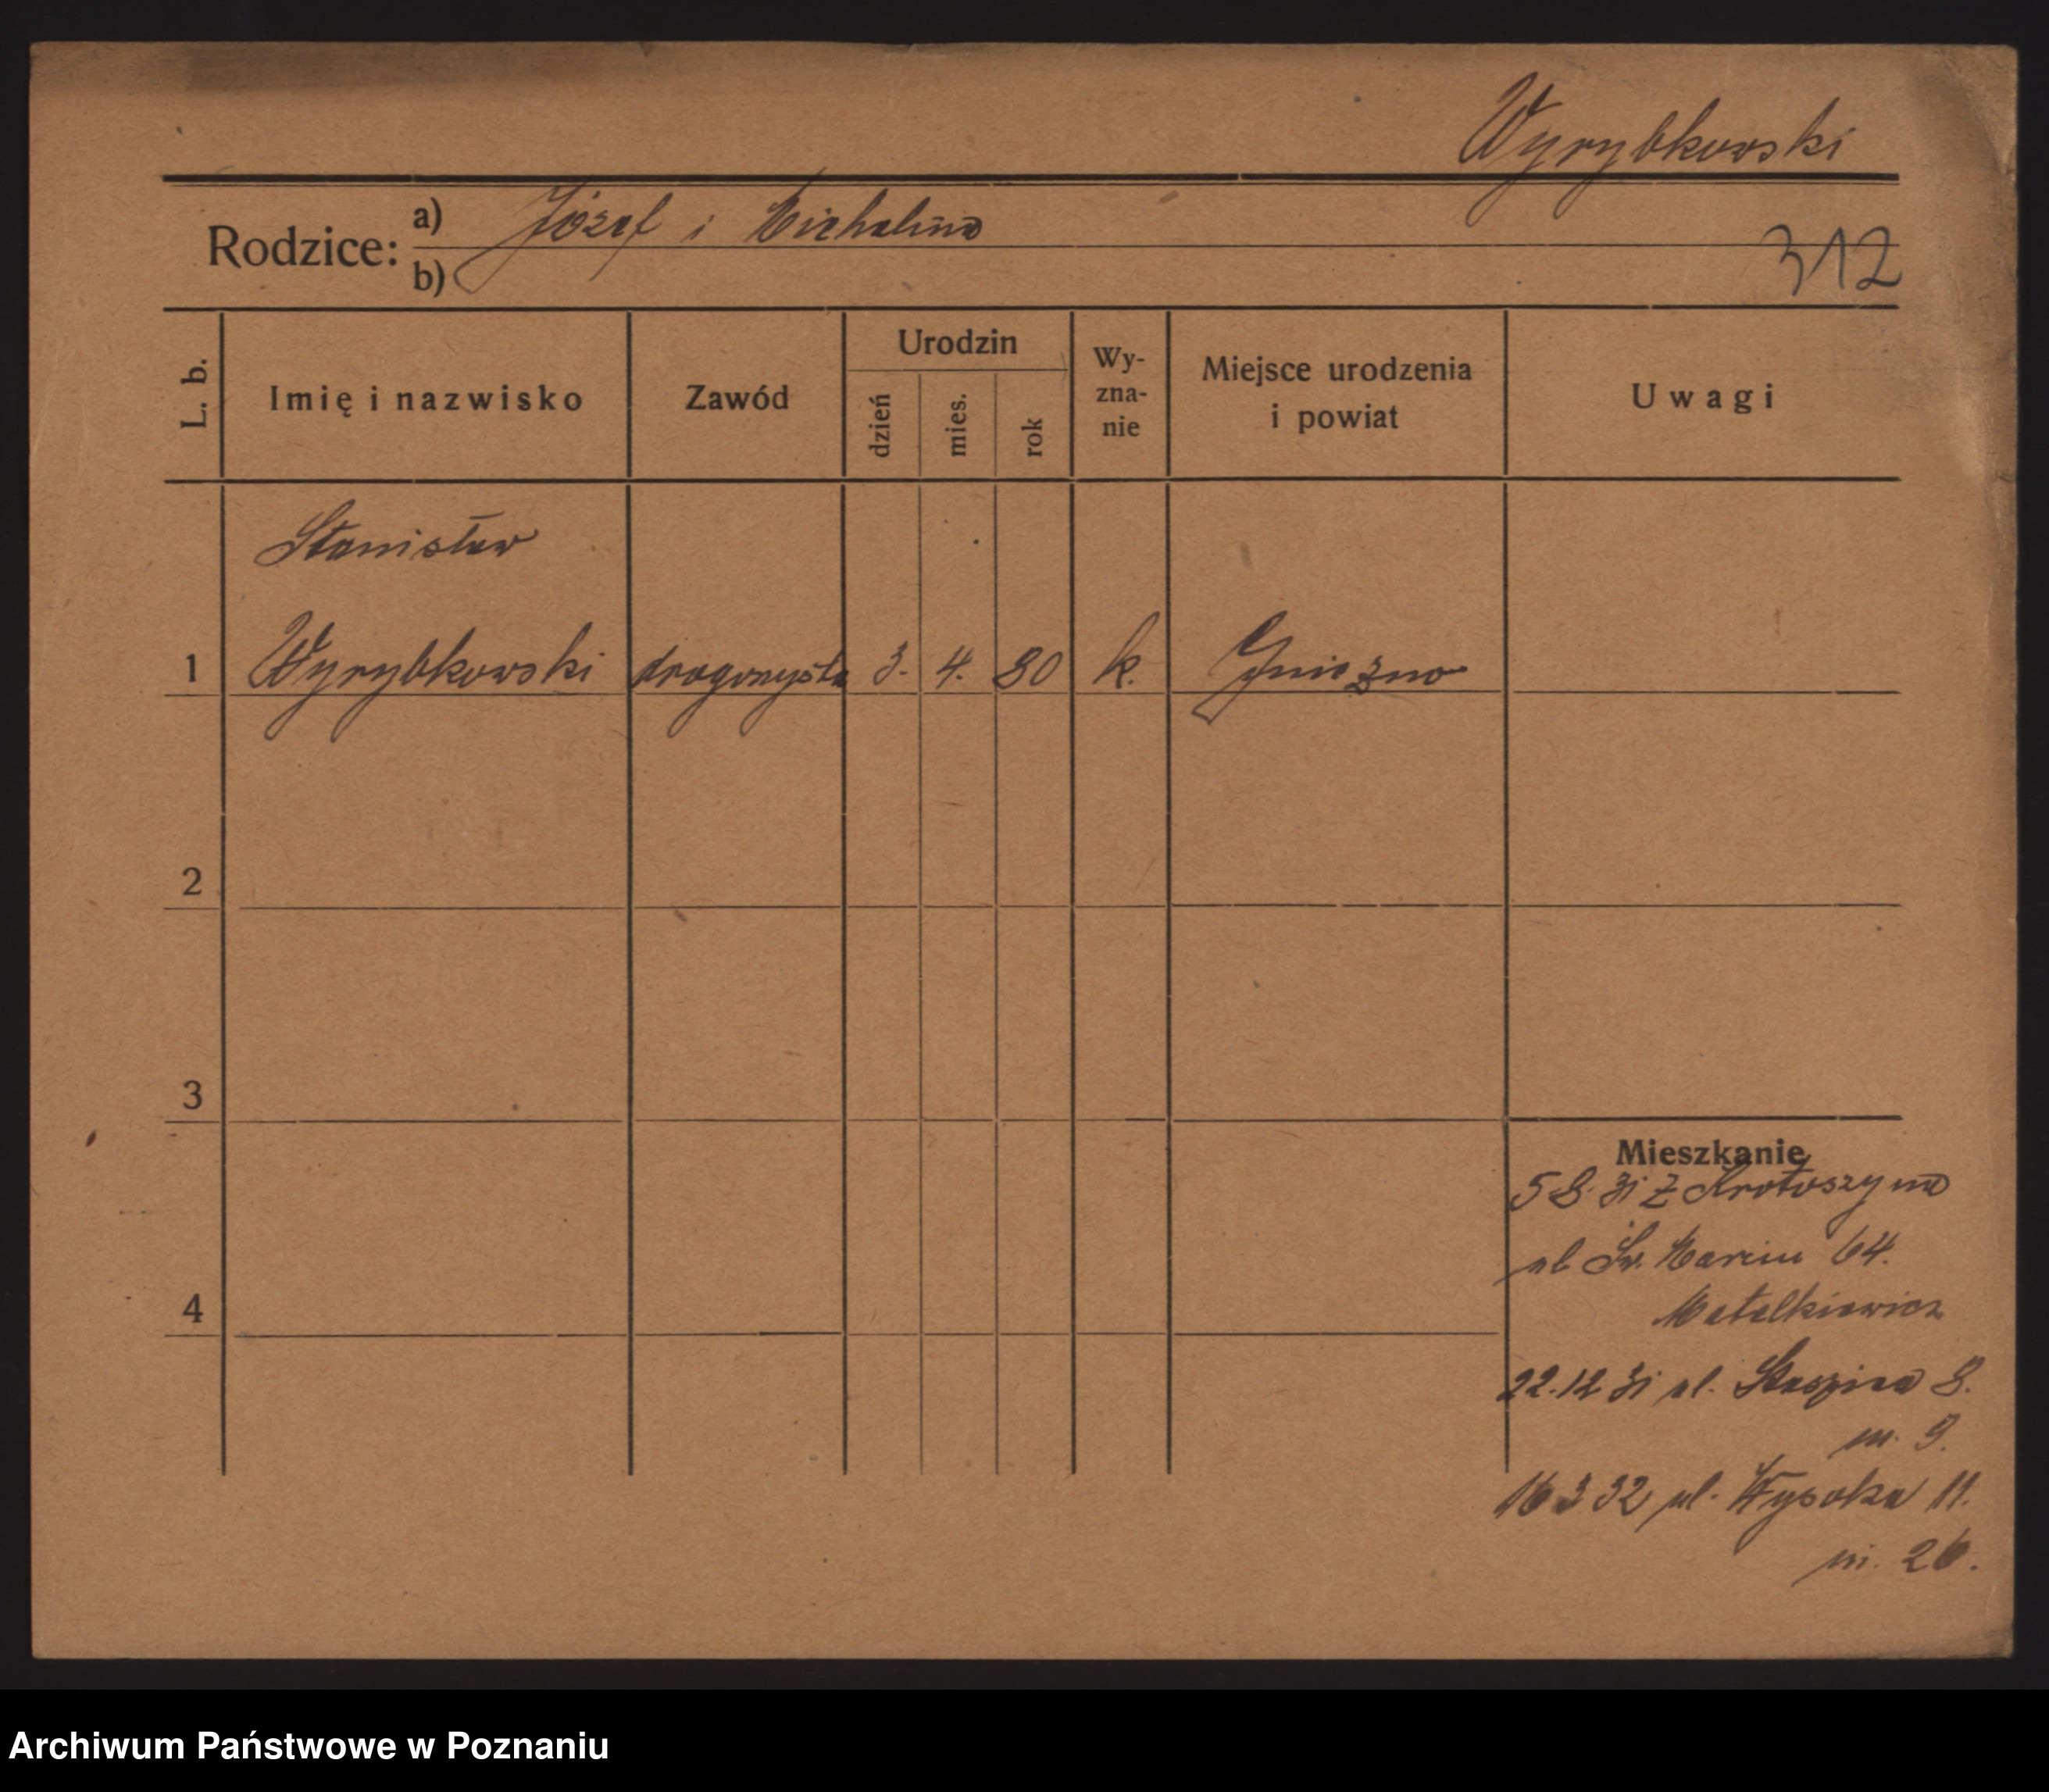 Wyrybkowski
Rodzice: a) Józef i Michalina
b)
312
L. b. Imię i nazwisko Zawód Urodzin dzień mies. rok Wy-zna-nie Miejsce urodzenia i powiat Uwagi
Stanisław
1 Wyrybkowski drogerzysta 3. 4. 80 k. Gniezno
2
3
Mieszkanie
5 8. 31 z Krotoszyna
ul Św. Marcin 64.
4
Matelkiewicz
22.12 31 ul. Staszica 8.
m. 9.
16 3 32 ul. Wysoka 11.
m. 26.
Archiwum Państwowe w Poznaniu